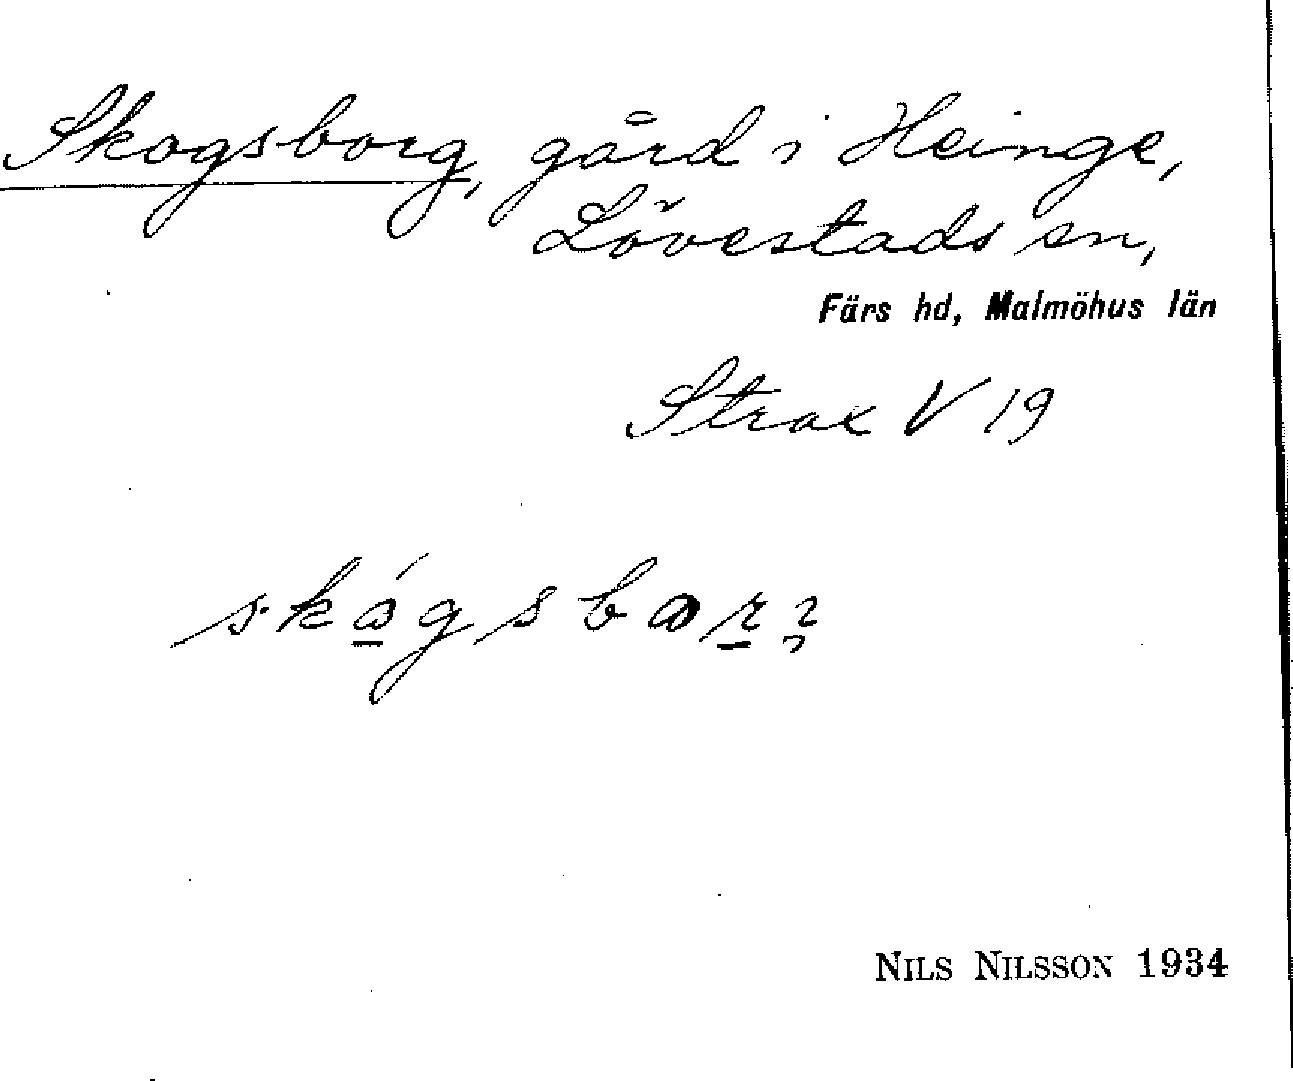 Skogsborg, gård i Heinge,
Lövestads sn,
Färs hd, Malmöhus län
Strax V 19
NILS NILSSON 1934